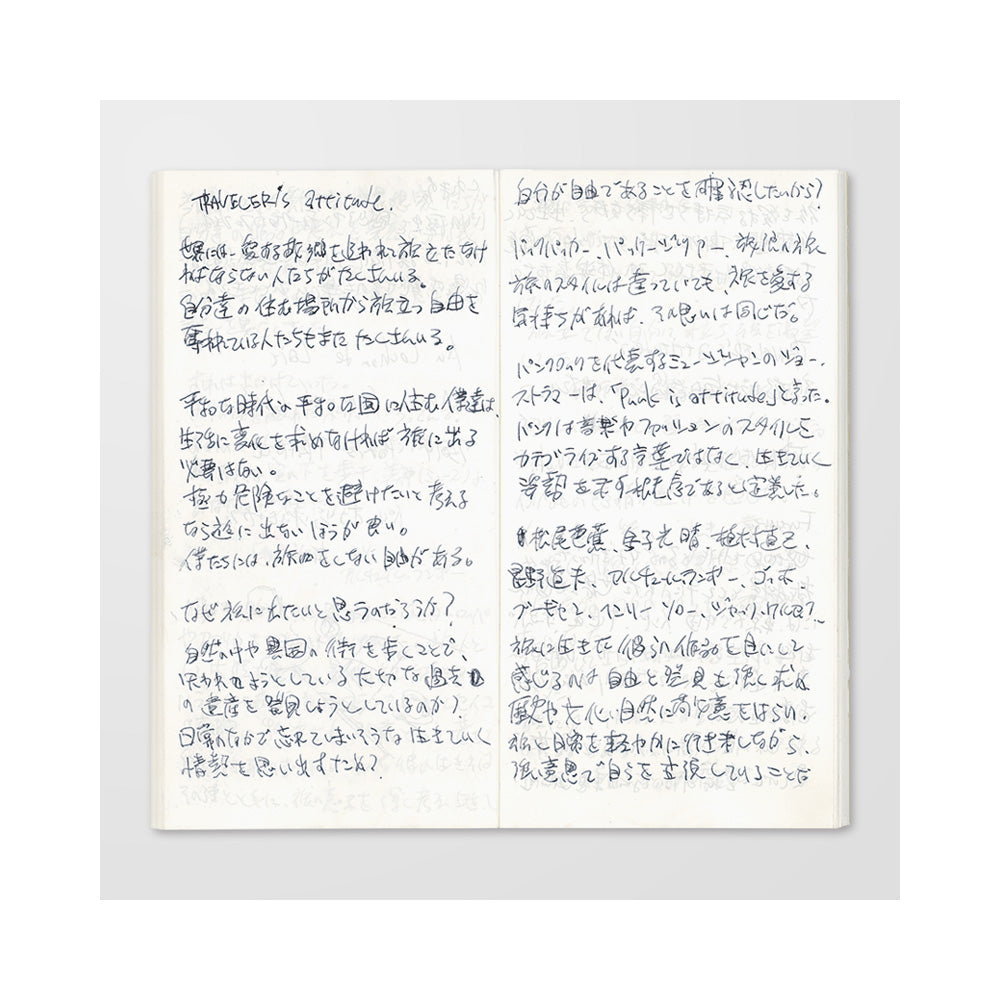 TRAVELER's attitude.
世界には、愛する故郷を追われて旅立たなけ
ればならない人たちがたくさんいる。
自分達の住む場所から旅立つ自由を
奪われている人たちもまたたくさんいる。
平和な時代の平和な国に住む僕達は、
生活に変化を求めなければ旅に出る
必要はない。
極力危険なことを避けたいと考える
なら旅に出ないほうが良い。
僕たちには、旅をしない自由がある。
なぜ旅に出たいと思うのだろうか?
自然の中や異国の街を歩くことで、
失われようとしている大切な過去
の遺産を発見しようとしているのか?
日常のなかで忘れてしまいそうな生きていく
情熱を思い出すため?
自分が自由であることを確認したいから?
バックパッカー、パッケージツアー、放浪の旅
旅のスタイルは違っていても、旅を愛する
気持ちがあれば、その思いは同じだ。
パンクロックを代表するミュージシャンのジョー・
ストラマーは、「Punk is attitude」と言った。
パンクは音楽やファッションのスタイルを
カテゴライズする言葉ではなく、生きていく
姿勢を示す根本であると定義した。
松尾芭蕉、金子光晴、植村直己、
星野道夫、アルチュール・ランボー、ゴッホ、
ゴーギャン、ヘンリー・ソロー、ジャック・ケルアック
旅に生きた彼らの作品を目にして
感じるのは自由と発見を強く求め
歴史や文化、自然に敬意をはらい、
旅と日常を軽やかに行き来しながら、
強い意思で自らを主張していることだ